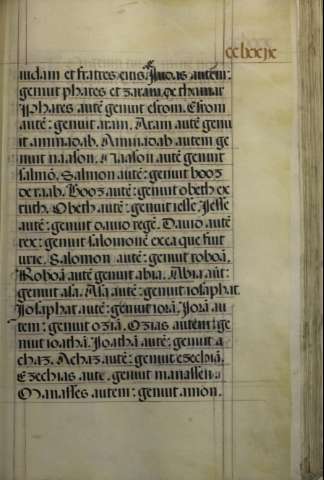 iudam et fratres eius. Iudas autem:
genuit phares et zaram, de thamar
Phares autē genuit esrom. Esrom
autē: genuit aram. Aram autē genu
it aminadab. Aminadab autem ge
nuit naason. Naason autē genuit
salmō. Salmon autē: genuit booz
de raab. Booz autē: genuit obeth ex
ruth. Obeth autē: genuit iesse. Iesse
autē: genuit dauid regē. Dauid autē
rex: genuit salomonē ex ea que fuit
urie. Salomon autē: genuit roboā.
Roboā autē genuit abia. Abia aūt:
genuit asa. Asa autē: genuit iosaphat.
Iosaphat autē: genuit iorā. Iorā au
tem: genuit oziā. Ozias autem: ge
nuit ioathā. Ioathā autē: genuit a
chaz. Achaz autē: genuit ezechiā.
Ezechias autē. genuit manassen
Manasses autem: genuit amon.